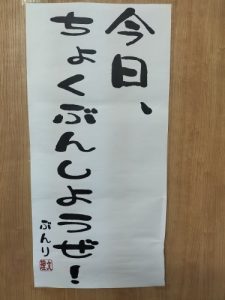 今日、
ちょくぶんしようぜ!
ぶんり